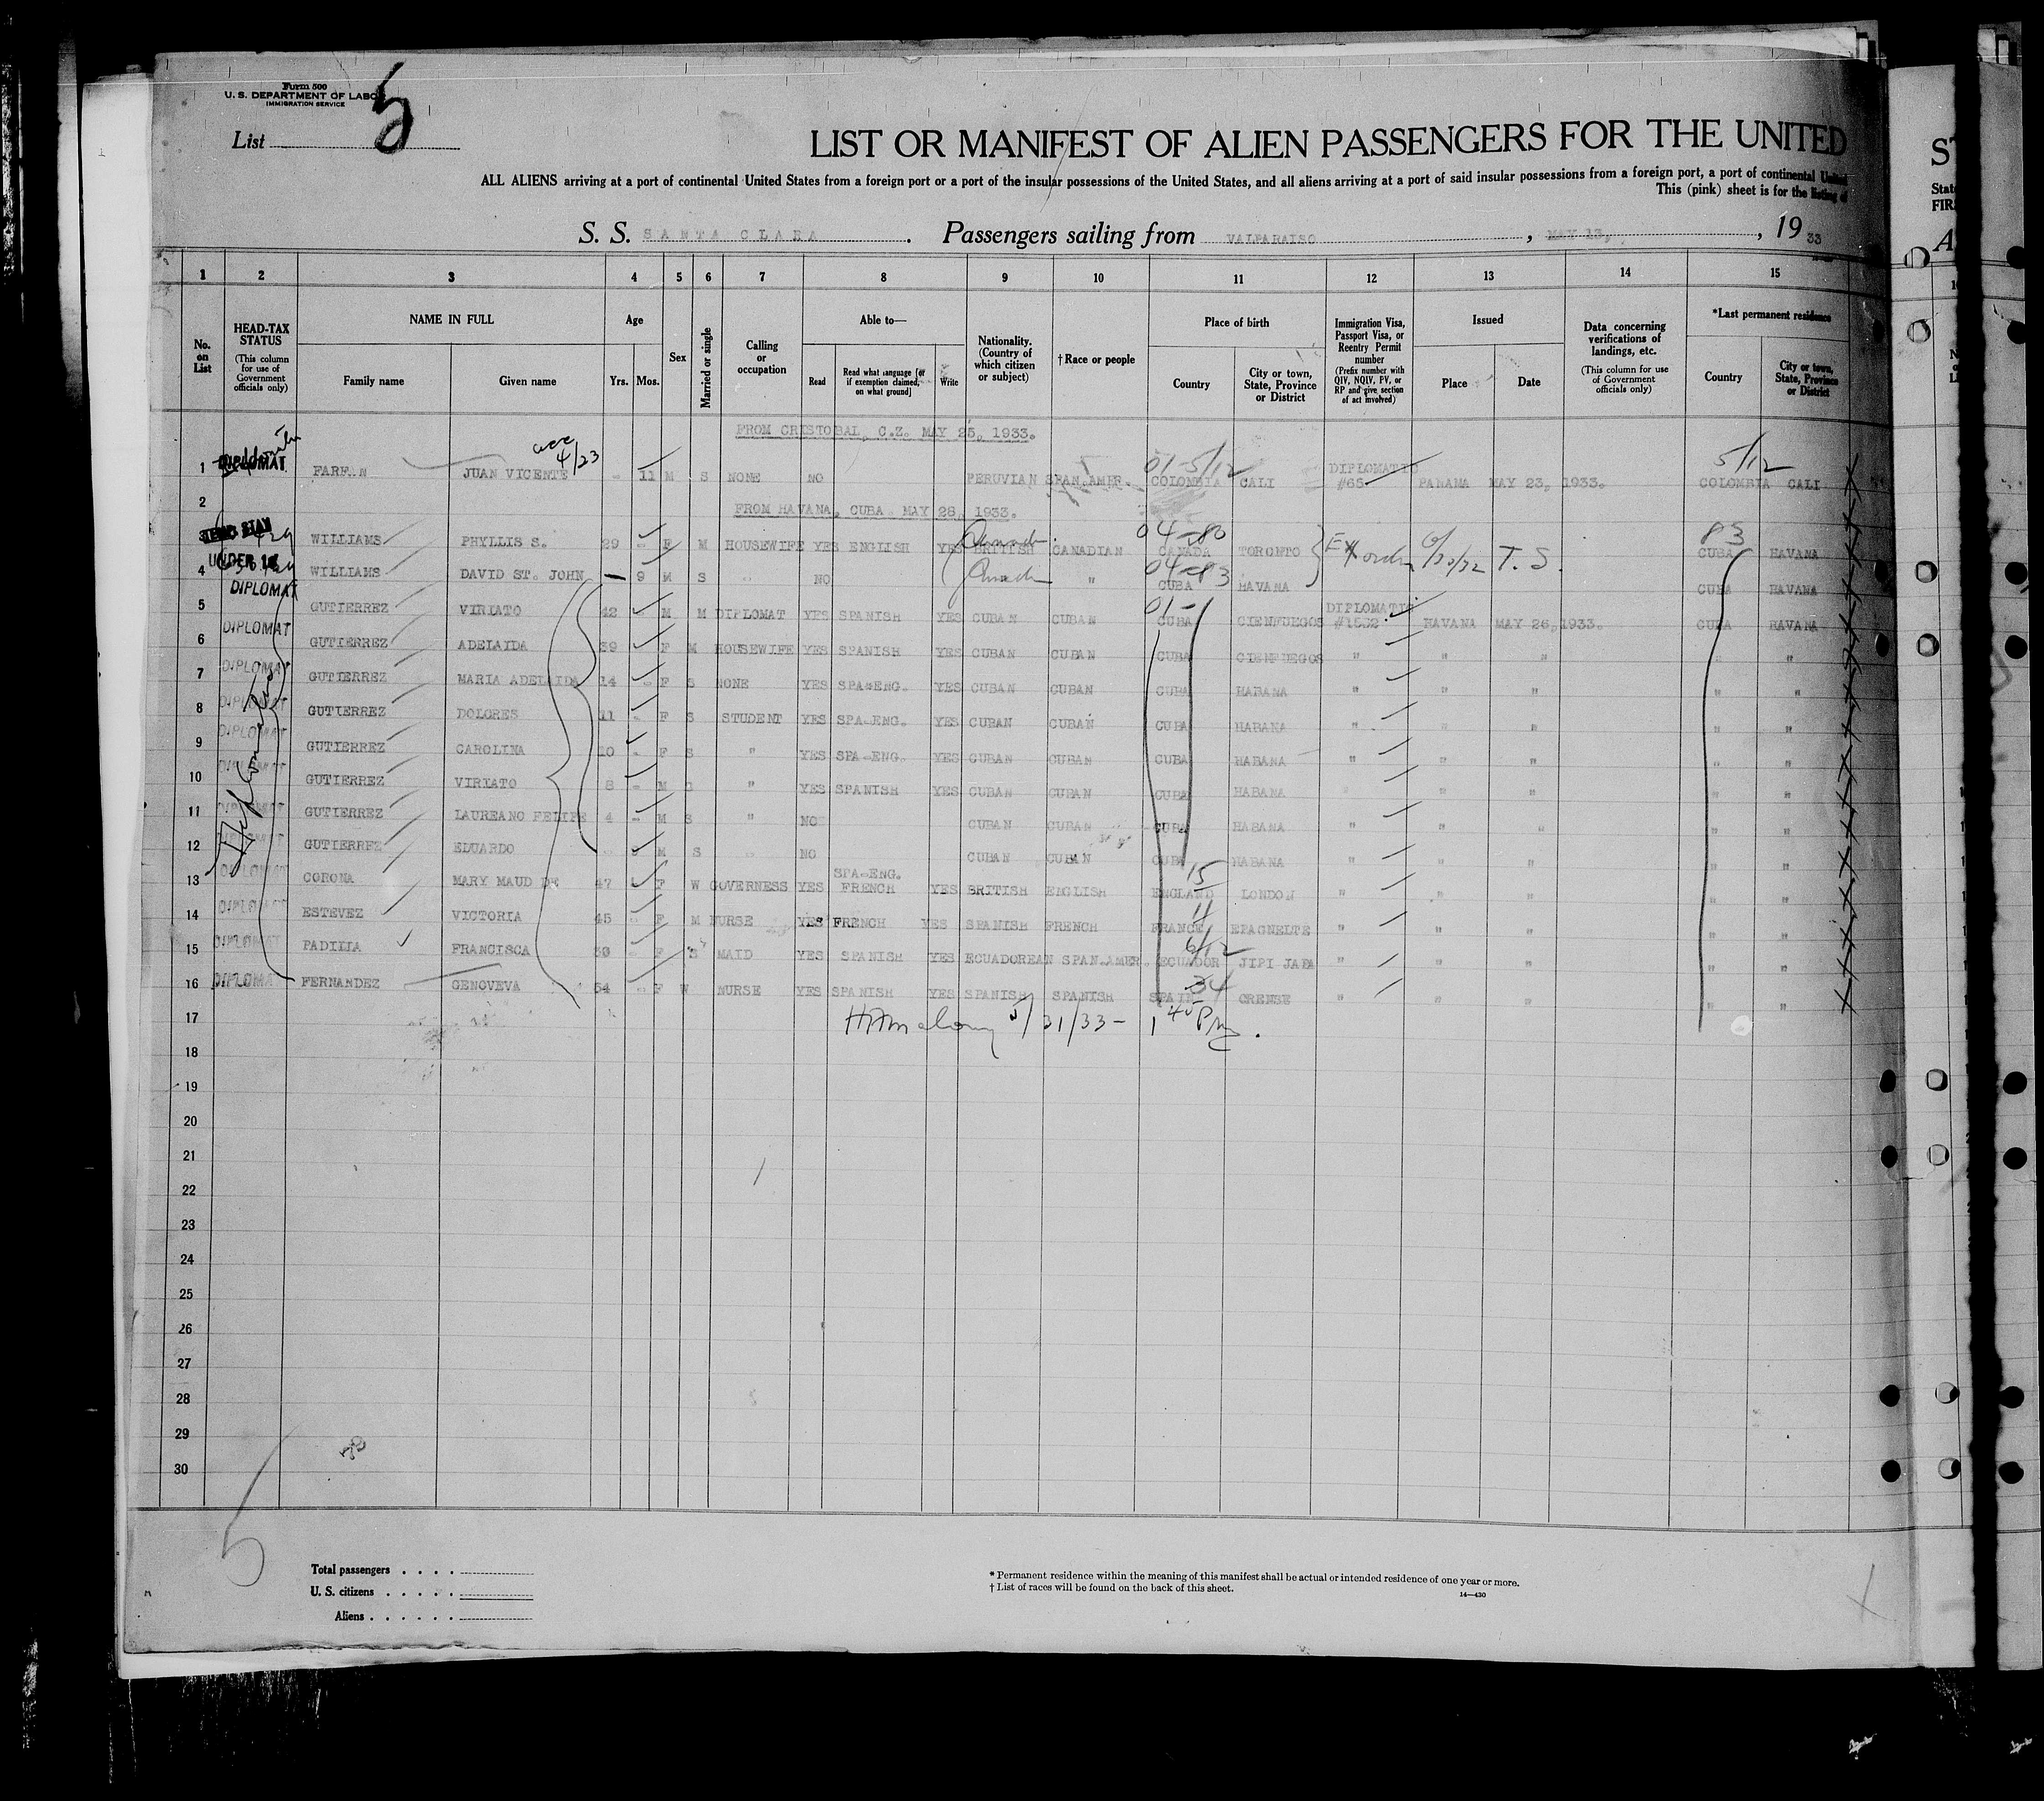 Form 500
U. S. DEPARTMENT OF LABOR
IMMIGRATION SERVICE
List 5
LIST OR MANIFEST OF ALIEN PASSENGERS FOR THE UNITED
ALL ALIENS arriving at a port of continental United States from a foreign port or a port of the insular possessions of the United States, and all aliens arriving at a port of said insular possessions from a foreign port, a port of continental United
This (pink) sheet is for the listing of
S. S. SANTA CLARA . Passengers sailing from VALPARAISO , MAY 13, , 19 33
1 2 3 4 5 6 7 8 9 10 11 12 13 14 15
No. on List
HEAD-TAX STATUS (This column for use of Government officials only)
NAME IN FULL Family name Given name
Age Yrs. Mos.
Sex
Married or single
Calling or occupation
Able to— Read Read what language [or if exemption claimed, on what ground] Write
Nationality. (Country of which citizen or subject)
†Race or people
Place of birth Country City or town, State, Province or District
Immigration Visa, Passport Visa, or Reentry Permit number (Prefix number with QIV, NQIV, PV, or RP and give section of act involved)
Issued Place Date
Data concerning verifications of landings, etc. (This column for use of Government officials only)
*Last permanent residence Country City or town, State, Province or District
FROM CRISTOBAL, C.Z. MAY 25, 1933.
4/23 01-5/12 5/12
1 DIPLOMAT FARFAN JUAN VICENTE - 11 M S NONE NO PERUVIAN SPAN.AMER. COLOMBIA CALI DIPLOMATIC #65 PANAMA MAY 23, 1933. COLOMBIA CALI
2 FROM HAVANA, CUBA MAY 28, 1933.
04-83 83
3 WILLIAMS PHYLLIS S. 29 - F M HOUSEWIFE YES ENGLISH YES BRITISH CANADIAN CANADA TORONTO T. S. CUBA HAVANA
UNDER 16
4 WILLIAMS DAVID ST. JOHN - 9 M S " NO " CUBA HAVANA CUBA HAVANA
04-83
5 DIPLOMAT GUTIERREZ VIRIATO 42 M M DIPLOMAT YES SPANISH YES CUBAN CUBAN CUBA CIENFUEGOS DIPLOMATIC HAVANA MAY 26, 1933. CUBA HAVANA
01-1
6 DIPLOMAT GUTIERREZ ADELAIDA 39 F M HOUSEWIFE YES SPANISH YES CUBAN CUBAN CUBA CIENFUEGOS " " " " "
7 DIPLOMAT GUTIERREZ MARIA ADELAIDA 14 - F S NONE YES SPA-ENG. YES CUBAN CUBAN CUBA HABANA " " " " "
8 DIPLOMAT GUTIERREZ DOLORES 11 - F S STUDENT YES SPA-ENG. YES CUBAN CUBAN CUBA HABANA " " " " "
9 DIPLOMAT GUTIERREZ CAROLINA 10 - F S " YES SPA-ENG. YES CUBAN CUBAN CUBA HABANA " " " " "
10 DIPLOMAT GUTIERREZ VIRIATO 8 - M S " YES SPANISH YES CUBAN CUBAN CUBA HABANA " " " " "
11 DIPLOMAT GUTIERREZ LAUREANO FELIPE 4 - M S " NO CUBAN CUBAN CUBA HABANA " " " " "
12 DIPLOMAT GUTIERREZ EDUARDO M S NO CUBAN CUBAN CUBA HABANA " " " " "
15
13 DIPLOMAT CORONA MARY MAUD DE 47 F W GOVERNESS YES SPA-ENG. FRENCH YES BRITISH ENGLISH ENGLAND LONDON " " " " "
11
14 DIPLOMAT ESTEVEZ VICTORIA 45 - F M NURSE YES FRENCH YES SPANISH FRENCH FRANCE EPAGNETTE " " " " "
6/12
15 DIPLOMAT PADILLA FRANCISCA 30 - F S MAID YES SPANISH YES ECUADOREAN SPAN.AMER. ECUADOR JIPI JAPA " " " " "
34
16 DIPLOMAT FERNANDEZ GENOVEVA 54 - F W NURSE YES SPANISH YES SPANISH SPANISH SPAIN ORENSE " " " " "
17 5/31/33 - 1 45 PM.
18
19
20
21
22
23
24
25
26
27
28
29
30
5
Total passengers . . . .
U. S. citizens . . . . .
Aliens . . . . . .
* Permanent residence within the meaning of this manifest shall be actual or intended residence of one year or more.
† List of races will be found on the back of this sheet.
14—430